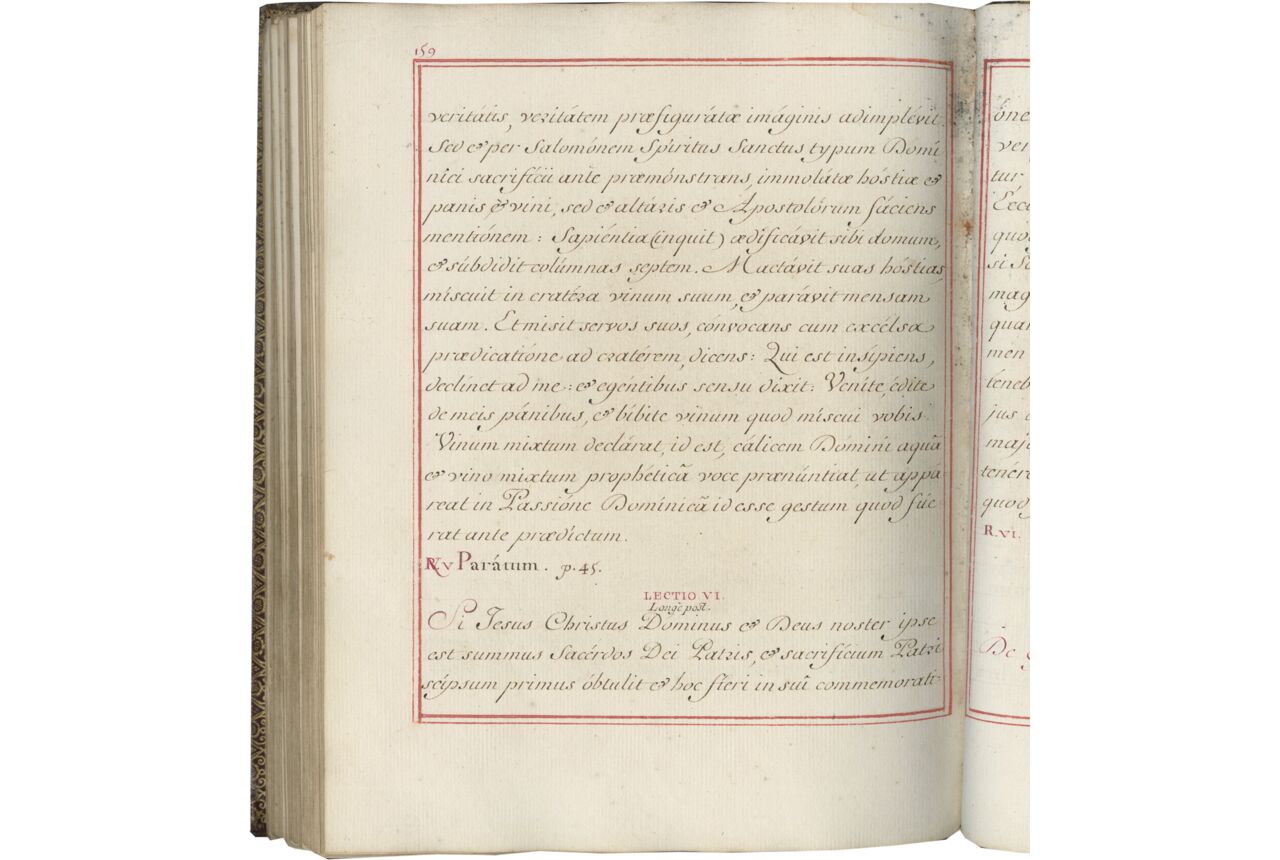 159
veritátis, veritátem præfigurátæ imáginis adimplévit.
Sed & per Salomónem Spíritus Sanctus typum Domí
nici sacrifícii ante præmónstrans, immolátæ hóstiæ &
panis & vini, sed & altáris & Apostolórum fáciens
mentiónem : Sapiéntia (inquit) ædificávit sibi domum,
& súbdidit colúmnas septem. Mactávit suas hóstias,
míscuit in cratéra vinum suum, & parávit mensam
suam. Et misit servos suos, cónvocans cum excélsa
prædicatióne ad cratérem, dicens : Qui est insípiens,
declínet ad me : & egéntibus sensu dixit : Veníte, édite
de meis pánibus, & bíbite vinum quod míscui vobis.
Vinum mixtum declárat, id est, cálicem Dómini aquâ
& vino mixtum prophéticâ voce prænúntiat, ut appa-
reat in Passióne Domínicâ id esse gestum quod fúe-
rat ante prædíctum.
℟. V Parátum. p. 45.
LECTIO VI.
Longè post.
Si Jesus Christus Dominus & Deus noster ipse
est summus Sacérdos Dei Patris, & sacrifícium Patri
seípsum primus óbtulit & hoc fíeri in suî commemorati-
óne
ver
tur
Ecc
quo
si S
mag
quar
men
teneb
jus
maj
tenér
quod
R. VI.
De